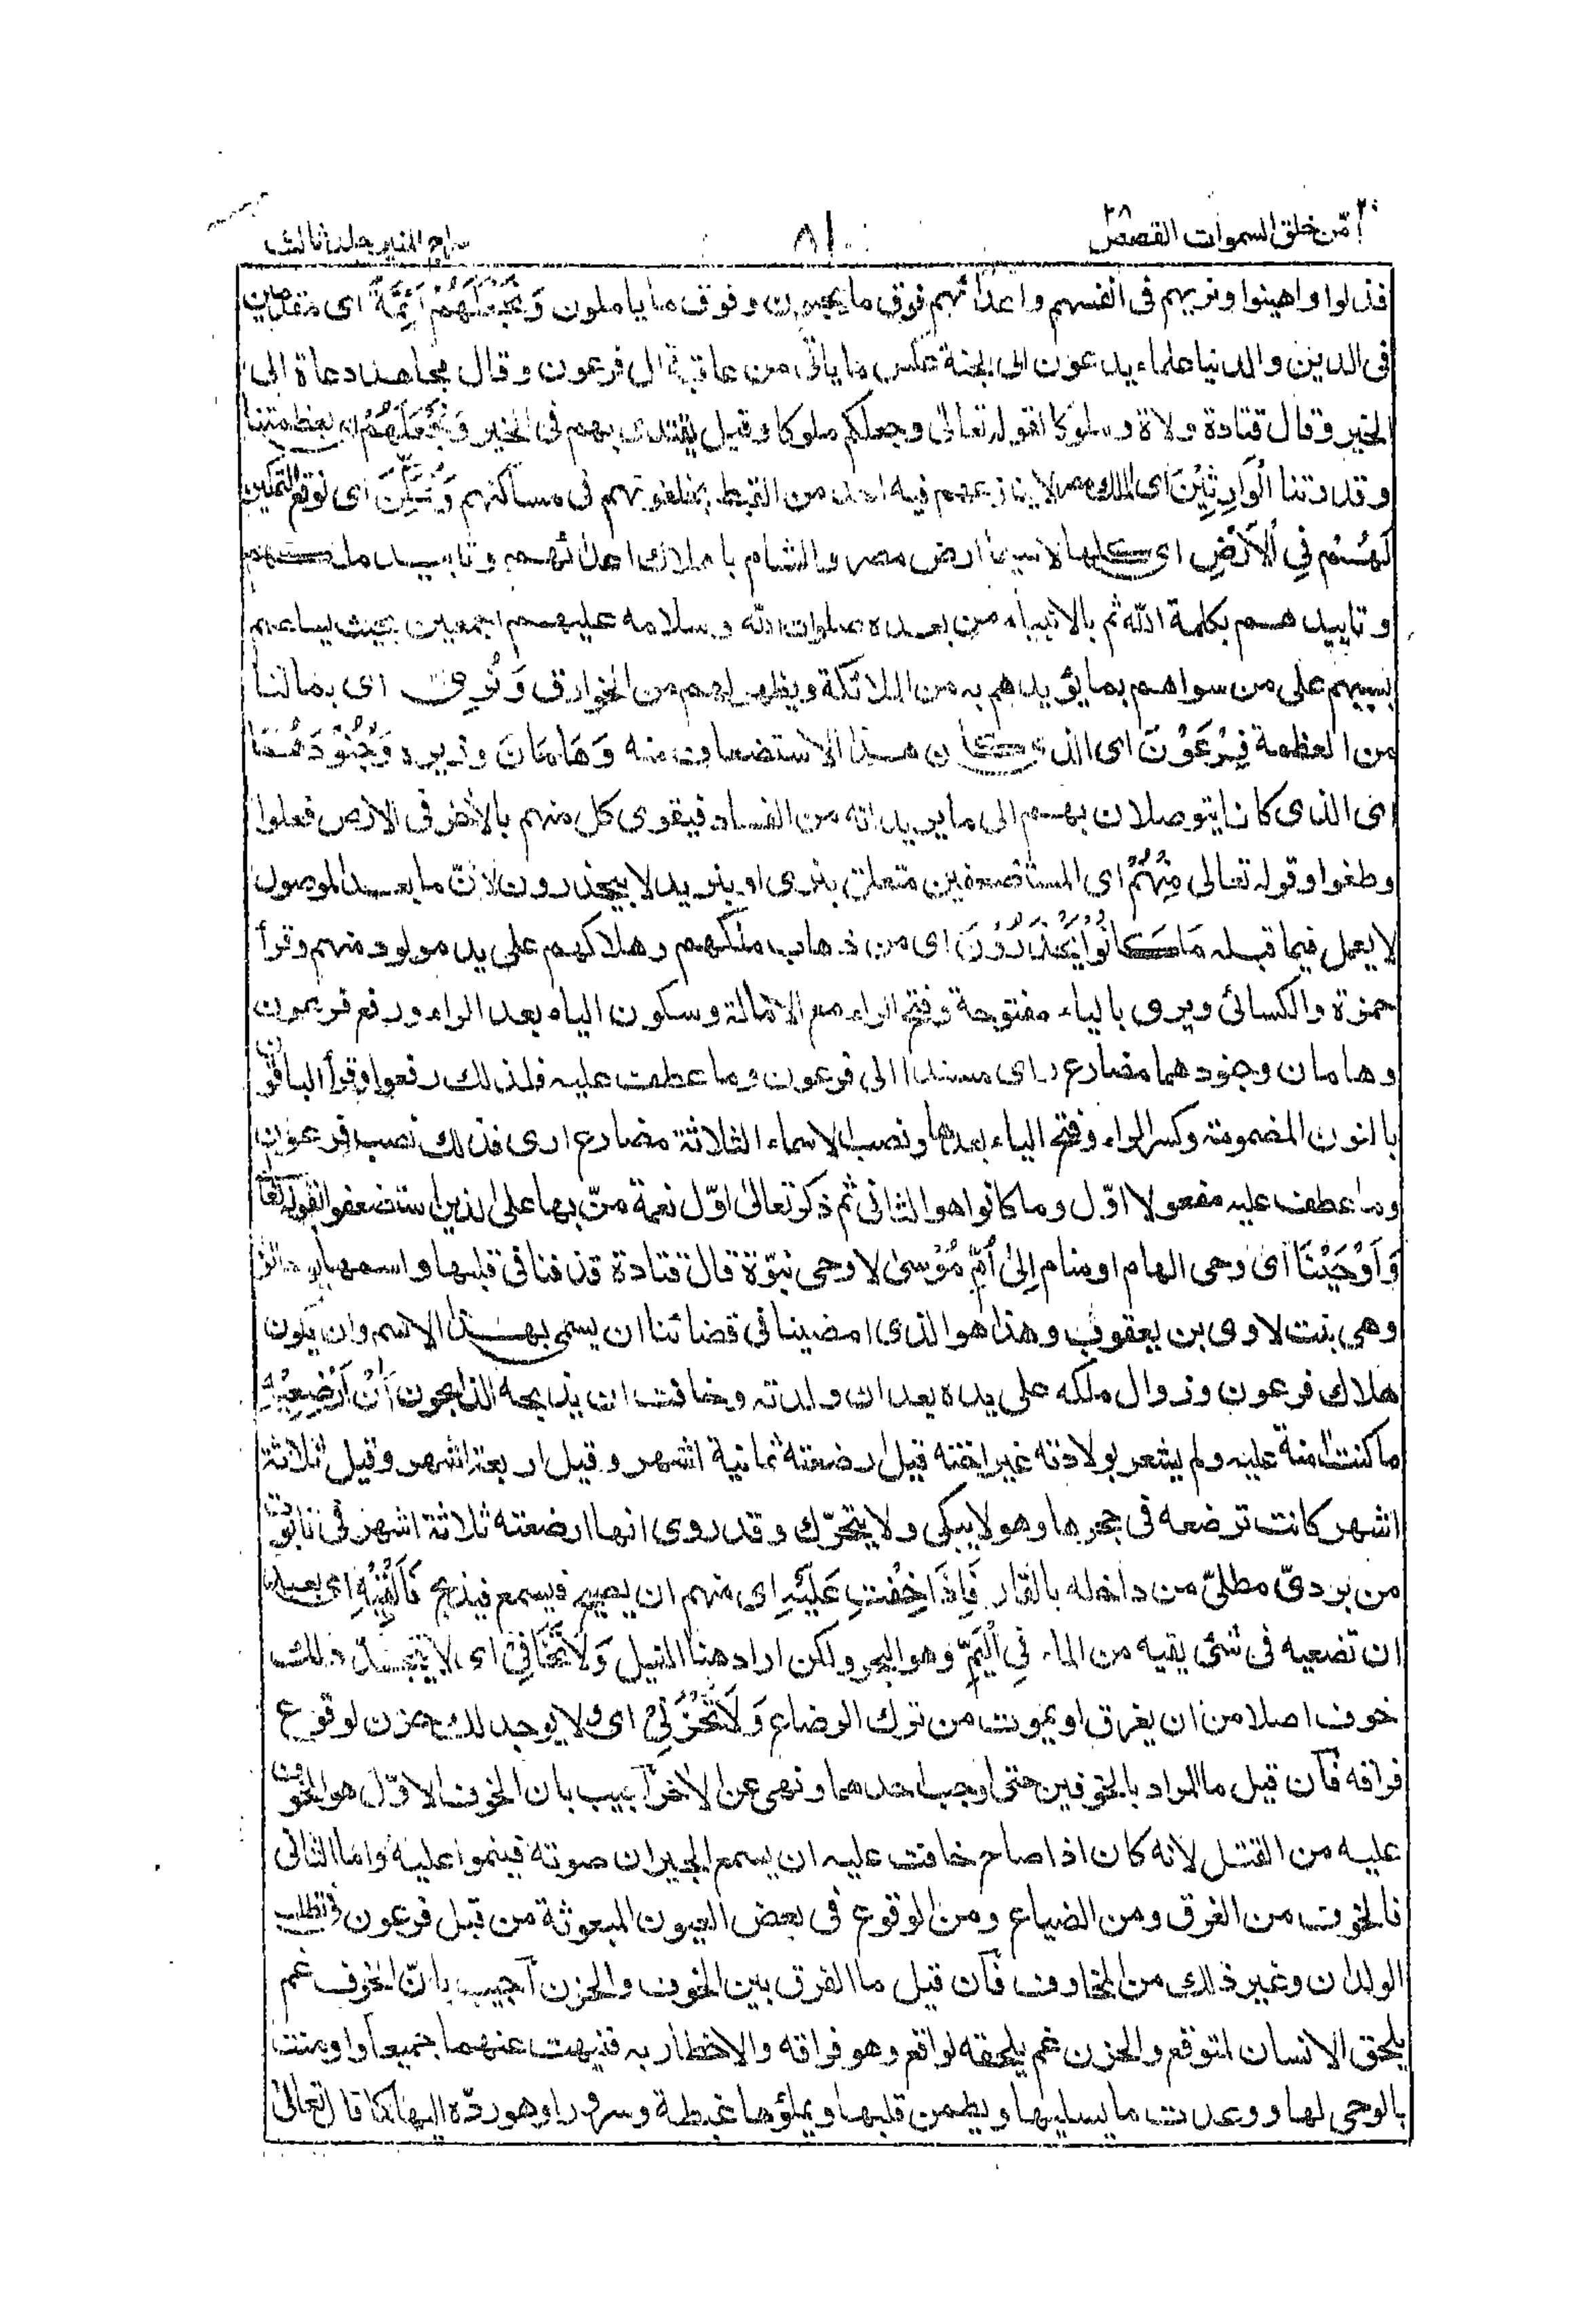 ٢٠ امّن خلق السموات القصص ٢٨
٨١
سراج المنير جلد ثالث
فذلوا واهينوا ونريهم فى انفسهم واعدائهم فوق ما يحبون وفوق ما ياملون وَنَجْعَلَهُمْ اَئِمَّةً اى مقدمين
فى الدين والدنيا علماء يدعون الى الجنة عكس ما ياتى من عاقبة ال فرعون وقال مجاهد دعاة الى
الخير وقال قتادة ولاة وملوكا لقوله تعالى وجعلكم ملوكا وقيل يقتدى بهم فى الخير وَنَجْعَلَهُمُ اى بعظمتنا
وقدرتنا الْوَارِثِيْنَ اى لملك مصر لا ينازعهم فيه احد من القبط يخلفونهم فى مساكنهم وَنُمَكِّنَ اى نوقع التمكين
لَهُمْ فِى الْاَرْضِ اى كلها لا سيما ارض مصر والشام باهلاك اعدائهم وتاييد ملكهم
وتاييدهم بكلمة الله ثم بالانبياء من بعده صلوات الله وسلامه عليهم اجمعين بحيث يسلطهم
بسببهم على من سواهم بما يؤيدهم به من الملائكة ويظهر لهم من الخوارق وَنُرِىَ اى بما لنا
من العظمة فِرْعَوْنَ اى الذى كان هذا الاستضعاف منه وَهَامَانَ وزيره وَجُنُوْدَهُمَا
اى الذى كانا يتوصلان بهم الى ما يريدانه من الفساد فيقوى كل منهم بالاخر فى الارض فعلوا
وطغوا وقوله تعالى مِنْهُمْ اى المستضعفين متعلق بنرى او بنريد لا بيحذرون لانّ ما بعد الموصول
لا يعمل فيما قبله مَا كَانُوْا يَحْذَرُوْنَ اى من ذهاب ملكهم وهلاكهم على يد مولود منهم وقرأ
حمزة والكسائى ويرى بالياء مفتوحة وفتح الراء مع الامالة وسكون الياء بعد الراء ورفع فرعون
وهامان وجنودهما مضارع راى مسندا الى فرعون وما عطف عليه فلذلك رفعوا وقرأ الباقون
بالنون المضمومة وكسر الراء وفتح الياء بعدها ونصب الاسماء الثلاثة مضارع ارى فذلك نصب فرعون
وما عطف عليه مفعولا اوّل وما كانوا هو الثانى ثم ذكر تعالى اوّل نعمة منّ بها على الذين استضعفوا بقوله تعالى
وَاَوْحَيْنَا اى وحى الهام او منام اِلٰى اُمِّ مُوْسٰى لا وحى نبوّة قال قتادة قذفنا فى قلبها واسمها
وهى بنت لاوى بن يعقوب وهذا هو الذى امضينا فى قضائنا ان يسمى بهذا الاسم وان يكون
هلاك فرعون وزوال ملكه على يده بعد ان ولدته وخافت ان يذبحه الذابحون اَنْ اَرْضِعِيْهِ
ما كنت امنة عليه ولم يشعر بولادته غير اخته قيل ارضعته ثمانية اشهر وقيل اربعة اشهر وقيل ثلاثة
اشهر كانت ترضعه فى حجرها وهو لا يبكى ولا يتحرّك وقد روى انها ارضعته ثلاثة اشهر فى تابوت
من بردىّ مطلىّ من داخله بالقار فَاِذَا خِفْتِ عَلَيْهِ اى منهم ان يصيح فيسمع فيذبح فَاَلْقِيْهِ اى بعد
ان تضعيه فى شئ يقيه من الماء فِى الْيَمِّ وهو البحر ولكن اراد هنا النيل وَلَا تَخَافِىْ اى لا يتجدد لك
خوف اصلا من ان يغرق او يموت من ترك الرضاع وَلَا تَحْزَنِىْ اى ولا يوجد لك حزن لوقوع
فراقه فآن قيل ما المراد بالخوفين حتى اوجب احدهما ونهى عن الاخر آجيب بان الخوف الاوّل هو الخوف
عليه من القتل لانه كان اذا صاح خافت عليه ان يسمع الجيران صوته فينموا عليه واما الثانى
فالخوف من الغرق ومن الضياع ومن الوقوع فى بعض العيون المبعوثة من قبل فرعون فى تطلب
الولدان وغير ذلك من المخاوف فآن قيل ما الفرق بين الخوف والحزن آجيب بانّ الخوف غم
يلحق الانسان لمتوقع والحزن غم يلحقه لواقع وهو فراقه والاخطار به فنهيت عنهما جميعا واومنت
بالوحى لها ووعدت ما يسليها ويطمن قلبها ويملؤها غبطة وسرورا وهو ردّه اليها كما قال تعالى